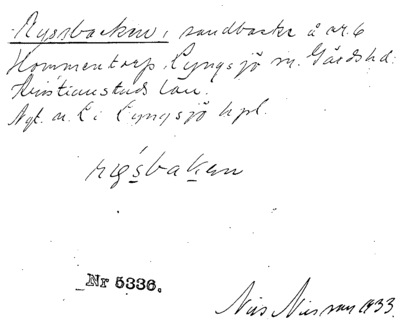 Ryssbacken, sandbacke å nr. 6
Hommentorp, Lyngsjö sn. Gärds hd.
Kristianstads län.
Ngt. n. i Lyngsjö kpl.
rys̱baḵen
Nr 5336.
Nils Nilsson 1933.